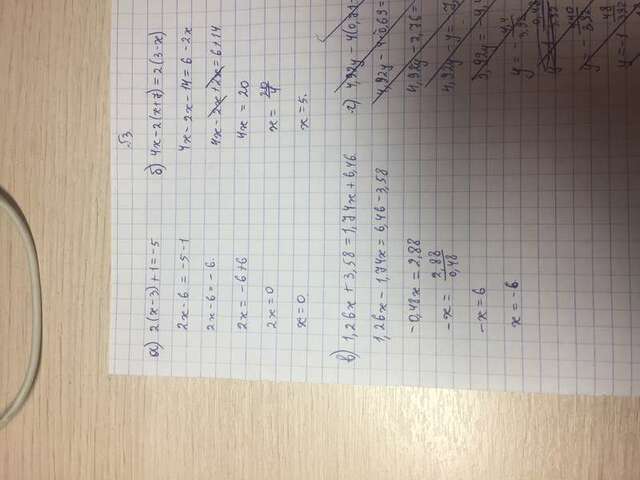 №3
а) 2(x-3)+1=-5
2x-6 = -5-1
2x-6 = -6.
2x = -6+6
2x=0
x=0
б) 4x-2(x+7)=2(3-x)
4x-2x-14=6-2x
4x-2x+2x=6+14
4x = 20
x = 20/4
x=5.
в) 1,26x+3,58=1,74x+6,46
1,26x-1,74x=6,46-3,58
-0,48x=2,88
-x = 2,88/0,48
-x=6
x=-6
г) 4,92y-4(0,
4,92y-4·0,69=
4,92y-2,76=
4,92y-y=
3,92y=